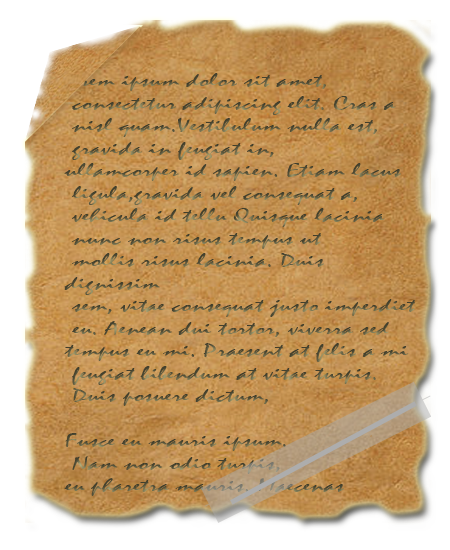 em ipsum dolor sit amet,
consectetur adipiscing elit. Cras a
nisl quam.Vestibulum nulla est,
gravida in feugiat in,
ullamcorper id sapien. Etiam lacus
ligula,gravida vel consequat a,
vehicula id tellu Quisque lacinia
nunc non risus tempus ut
mollis risus lacinia. Duis
dignissim
sem, vitae consequat justo imperdiet
eu. Aenean dui tortor, viverra sed
tempus eu mi. Praesent at felis a mi
feugiat bibendum at vitae turpis.
Duis posuere dictum,
Fusce eu mauris ipsum.
Nam non odio turpis,
eu pharetra mauris. Maecenas